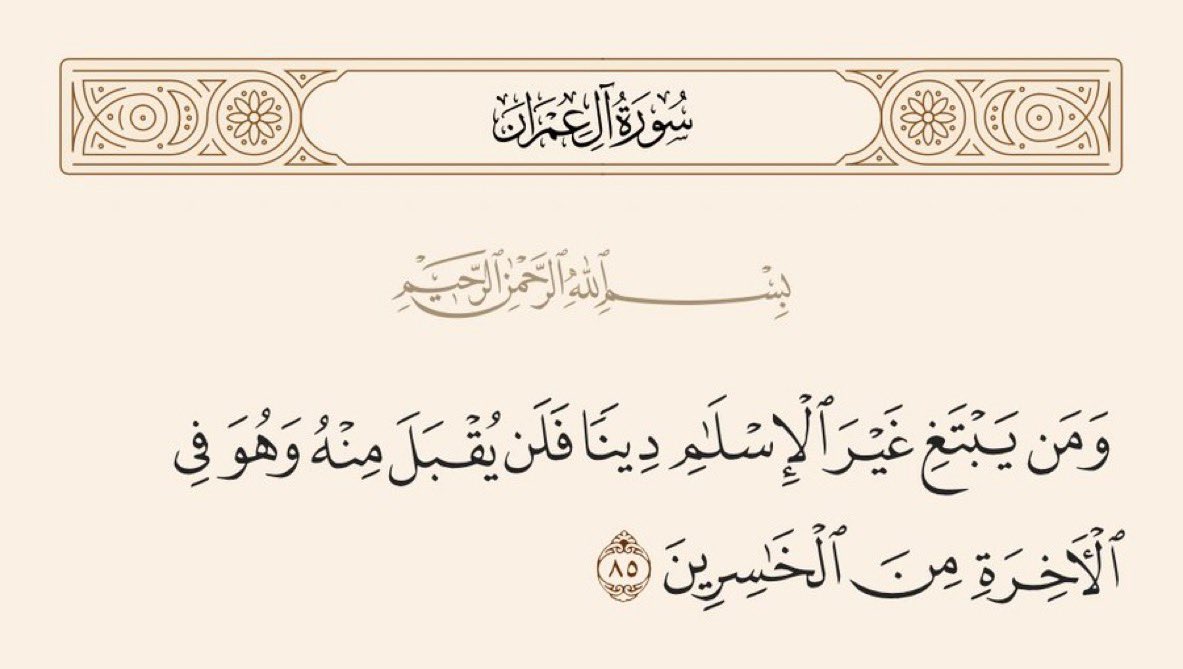 سُورَةُ آلِ عِمْرَانَ
بِسْمِ ٱللَّهِ ٱلرَّحْمَٰنِ ٱلرَّحِيمِ
وَمَن يَبْتَغِ غَيْرَ ٱلْإِسْلَٰمِ دِينًا فَلَن يُقْبَلَ مِنْهُ وَهُوَ فِى
ٱلْءَاخِرَةِ مِنَ ٱلْخَٰسِرِينَ ٨٥